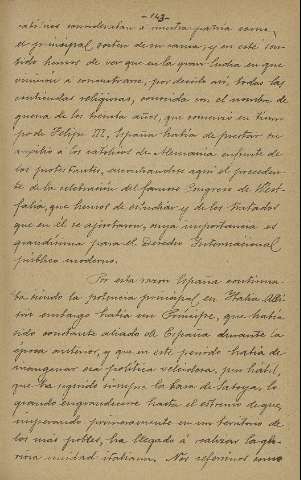 -143-
católicos consideraban á nuestra patria como
el principal sosten de su causa; y en este sen-
tido hemos de ver que en la gran lucha en que
vinieron á concentrarse, por decirlo así, todas las
contiendas religiosas, conocida con el nombre de
guerra de los treinta años, que comenzó en tiem-
po de Felipe III, España había de prestar su
auxilio á los católicos de Alemania enfrente de
los protestantes, encontrándose aquí el preceden-
te de la celebración del famoso Congreso de West-
falia, que hemos de estudiar, y de los tratados
que en él se ajustaron, cuya importancia es
grandísima para el Derecho Internacional
público moderno.
Por esta razon España continua-
ba siendo la potencia principal en Italia. Allí
sin embargo había un Príncipe, que había
sido constante aliado de España durante la
época anterior, y que en este período había de
inaugurar esa política veleidosa, pero hábil,
que ha seguido siempre la casa de Saboya, lo
grando engrandecerse hasta el extremo de que,
imperando primeramente en un territorio de
los mas pobres, ha llegado á realizar la glo-
riosa unidad italiana. Nos referimos como